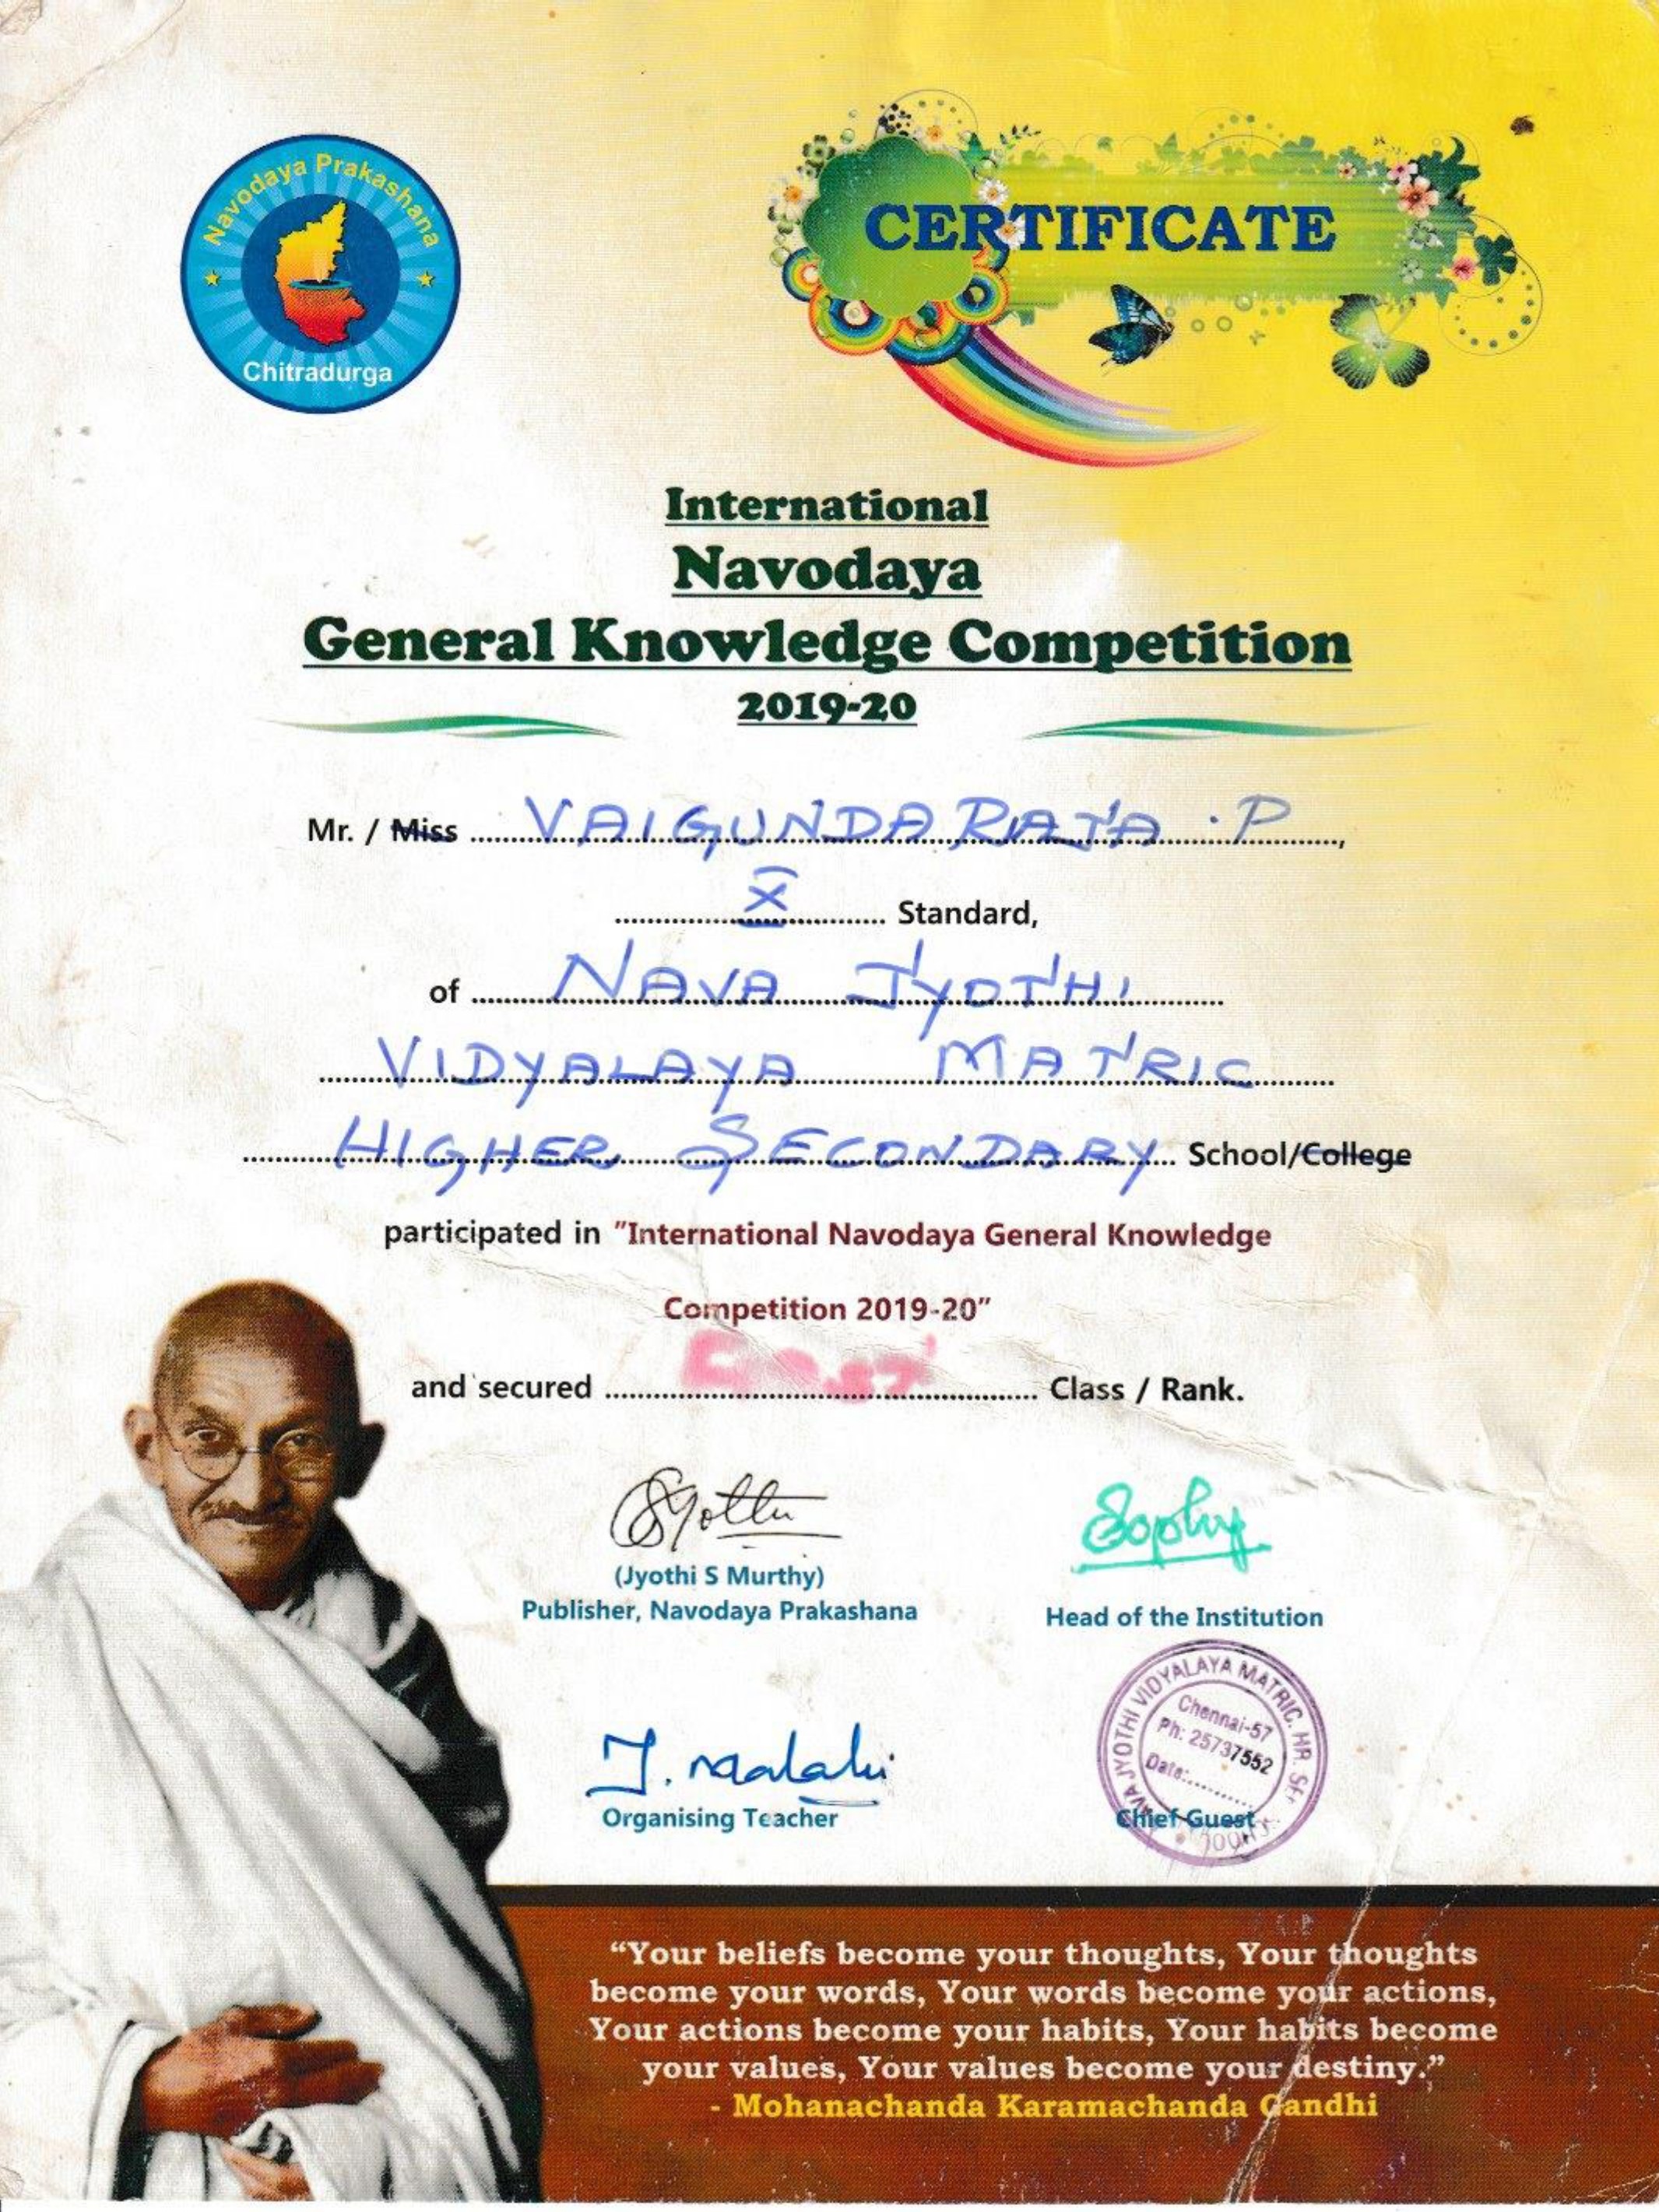 Navodaya Prakashana
Chitradurga
CERTIFICATE
International
Navodaya
General Knowledge Competition
2019-20
Mr. / Miss VAIGUNDA RAJA . P ,
X Standard,
of NAVA JYOTHI
VIDYALAYA MATRIC
HIGHER SECONDARY School/College
participated in "International Navodaya General Knowledge
Competition 2019-20"
and secured Class / Rank.
Sophy
(Jyothi S Murthy)
Publisher, Navodaya Prakashana
Head of the Institution
VIDYALAYA MATRIC. HR. SEC
JYOTHI
Chennai-57
Ph: 25737552
Date:
Organising Teacher
Chief Guest
“Your beliefs become your thoughts, Your thoughts
become your words, Your words become your actions,
Your actions become your habits, Your habits become
your values, Your values become your destiny.”
- Mohanachanda Karamachanda Gandhi